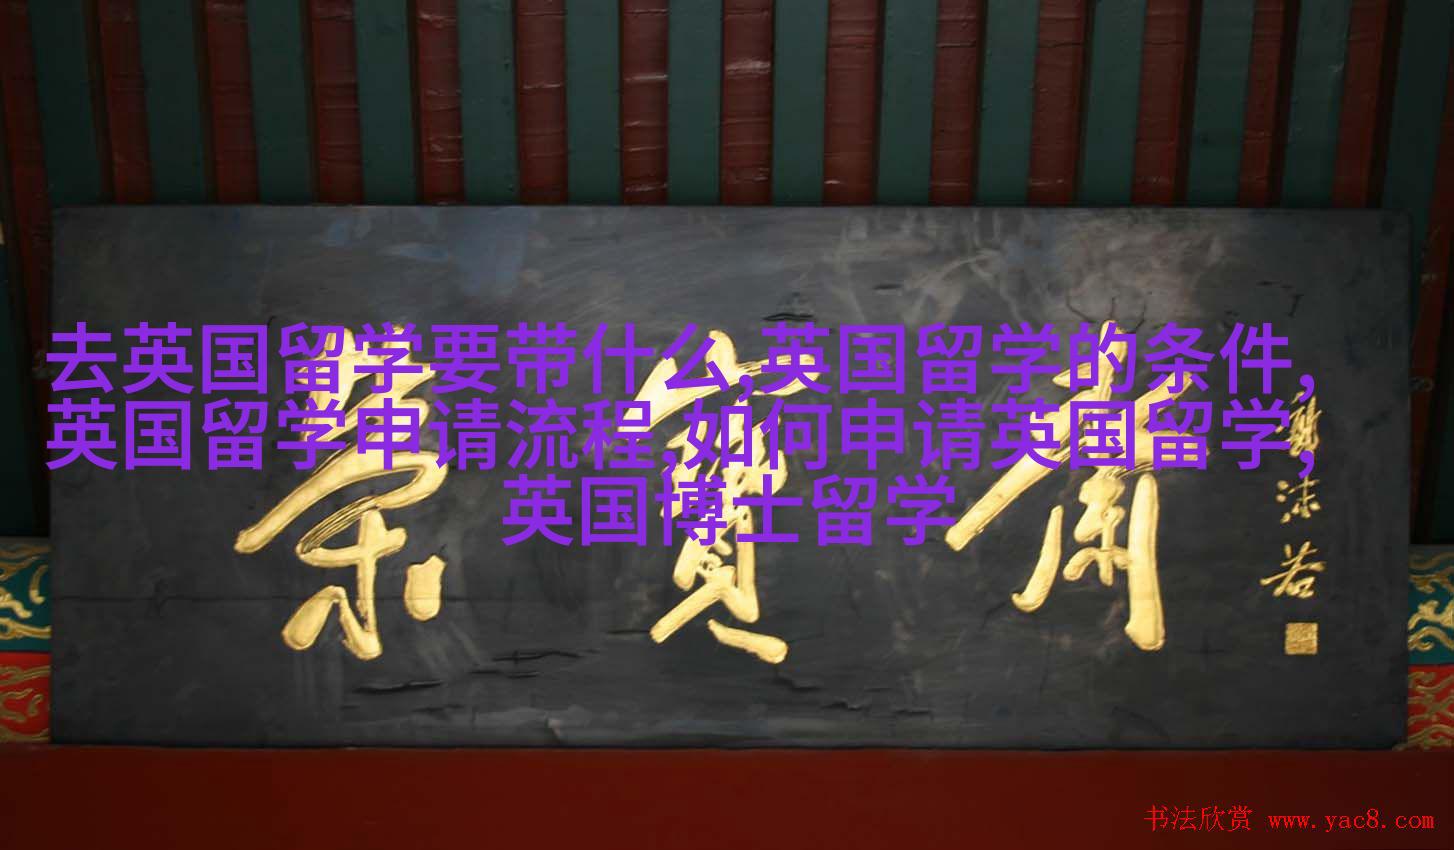 去英国留学要带什么,英国留学的条件,
英国留学申请流程,如何申请英国留学,
英国博士留学
荣宝斋
郭沫若
书法欣赏 www.yac8.com